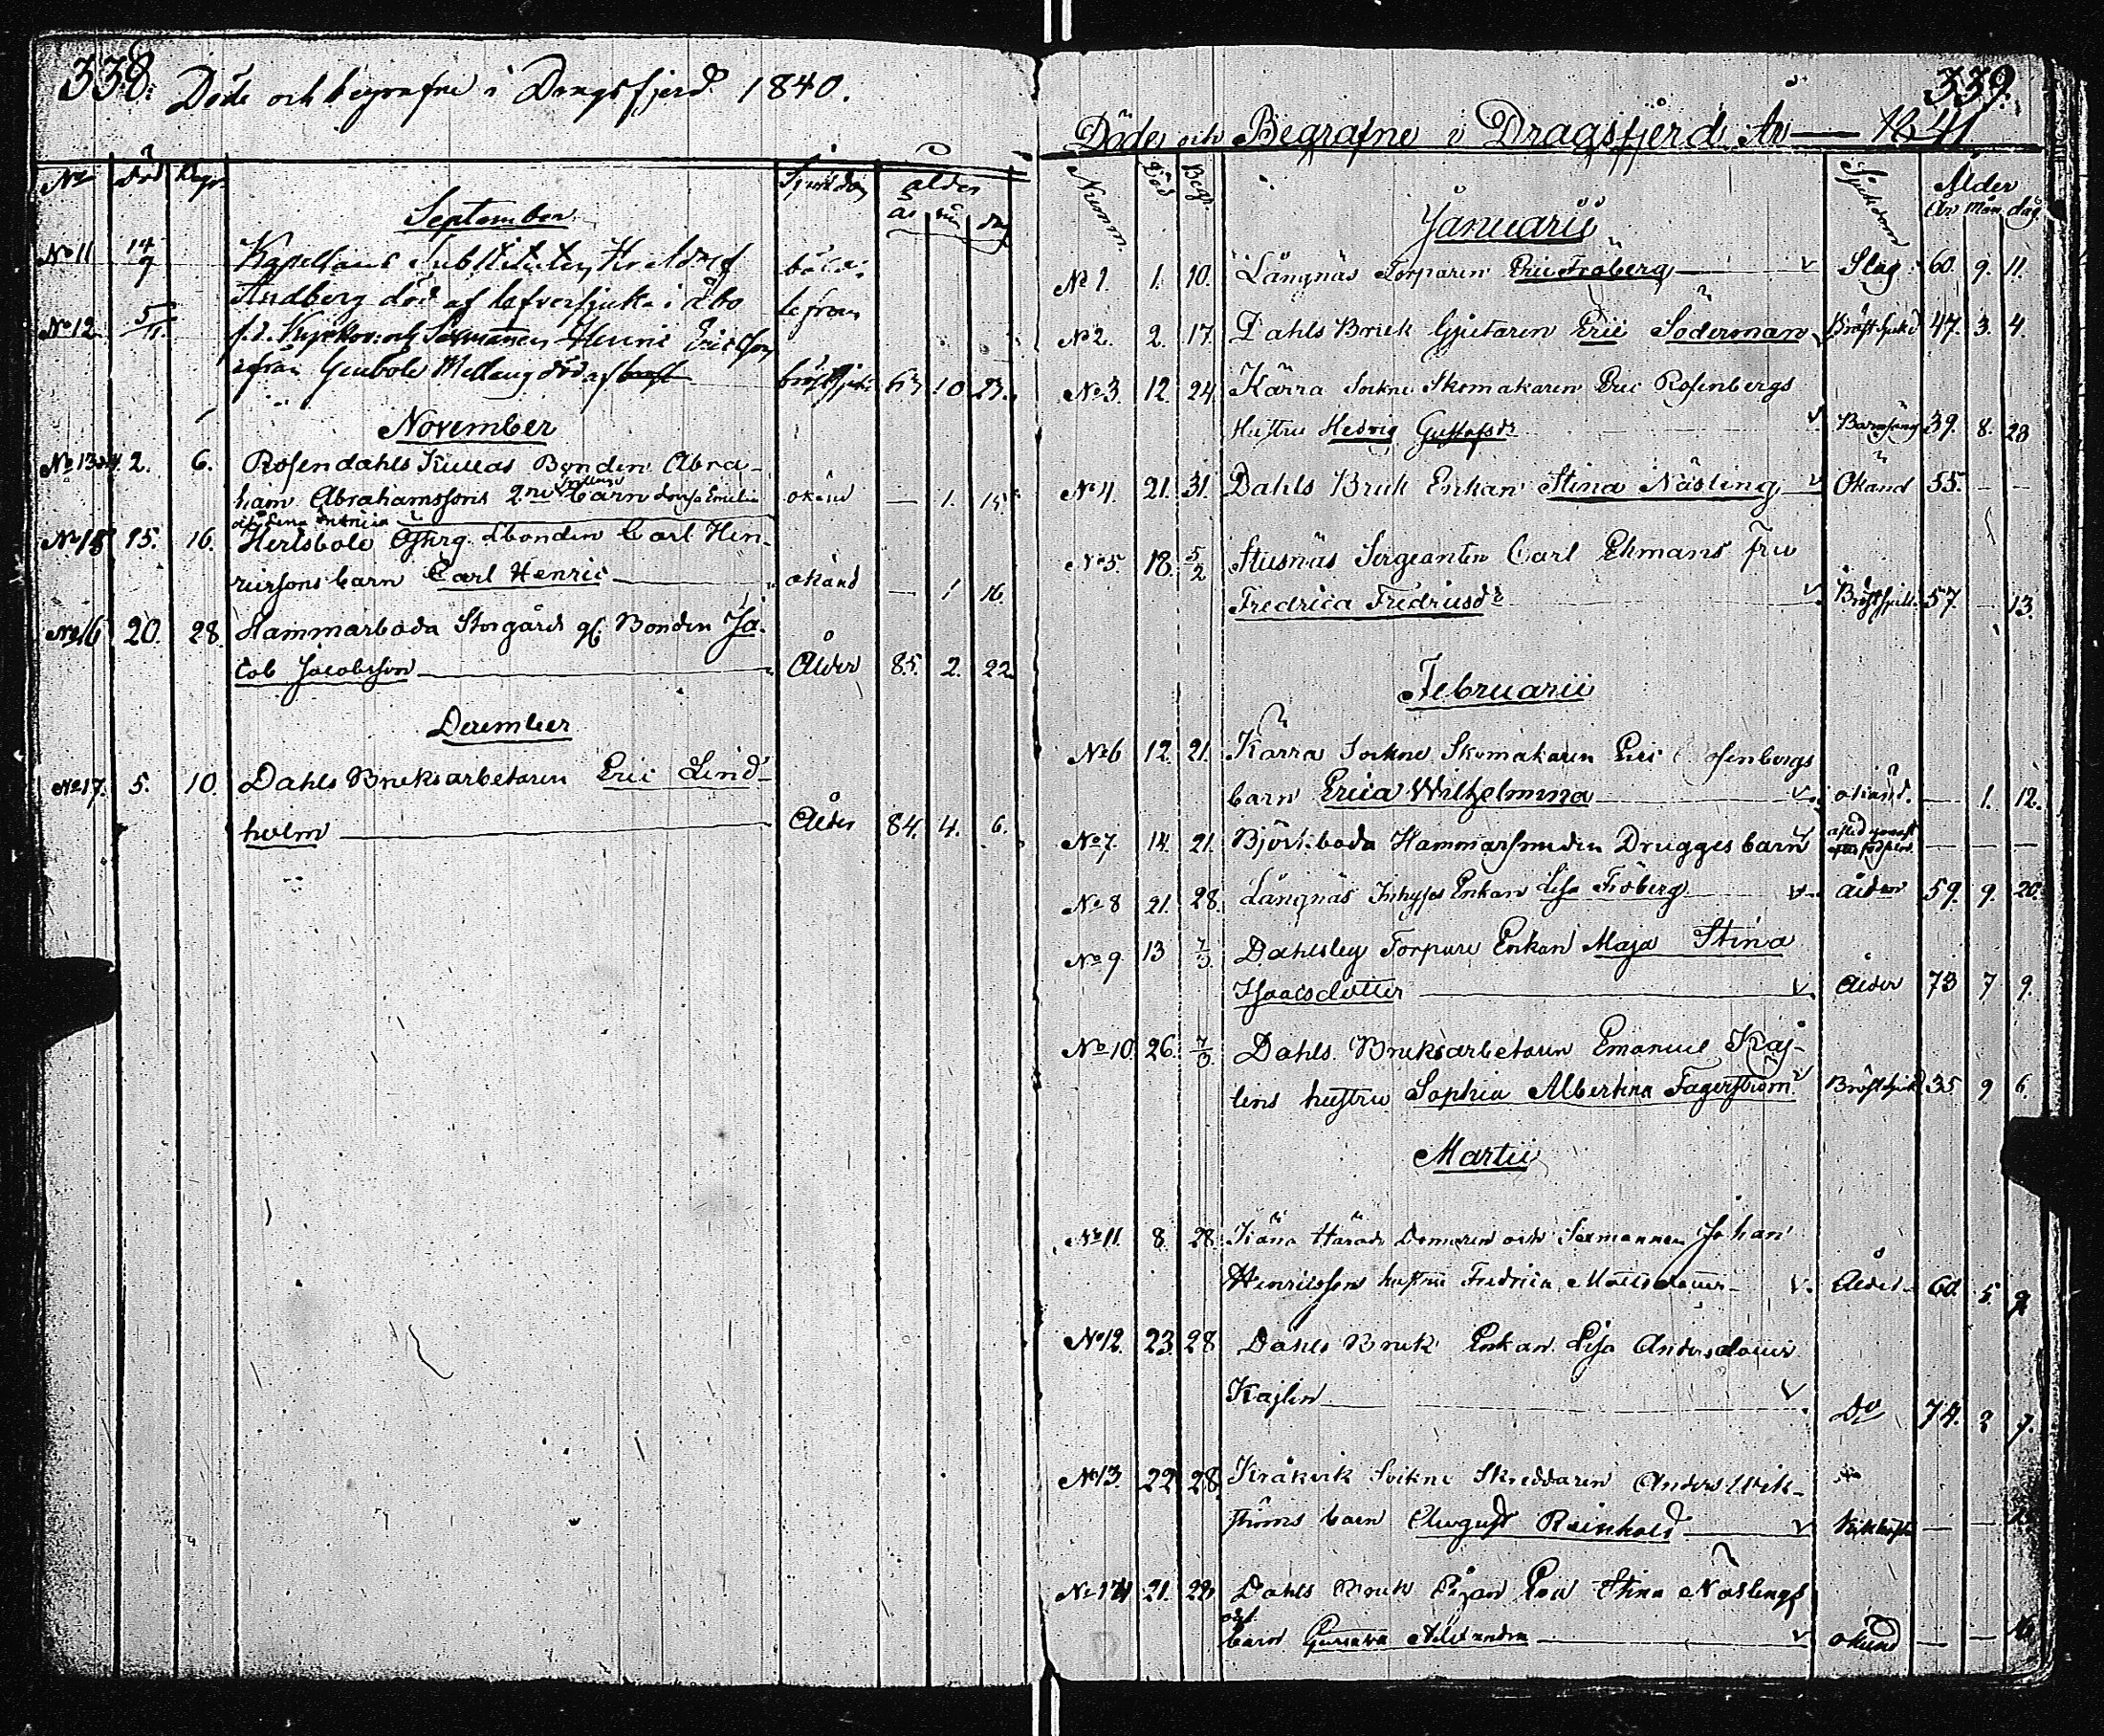 338.
Döde och begrafne i Dragsfjerd 1840.
No Död Begr. Sjukdom ålder
år mån dag
September
No 11 14/9 Kapellans Substituten
Lindberg död af lefversjuka i Åbo
No 12. 5/11 f.d. och Sexmannen Henric Ericsson
ifrån Genböle Mellang död af bröst bröstsjuka 63 10 23.
November
No 13 2. 6. Rosendahls Kullas Bonden Abra-
ham Abrahamssons 2ne barn Lovisa Emelia okänd — 1. 15.
No 15 15. 16. Hertsböle bonden Carl Hen-
ricssons barn Carl Henric okänd — 1 16.
No 16 20. 28. Hammarboda Storgård gl. Bonden Ja-
cob Jacobsson Ålder 85. 2. 22
December
No 17. 5. 10. Dahls Bruksarbetaren Eric Lind-
holm Ålder 84. 4. 6.
339.
Döde och Begrafne i Dragsfjerd År — 1841
Numm. Död Begr. Sjukdom Ålder
År Mån dag.
Januarii
No 1. 1. 10. Långnäs Torparen Eric Fröberg Slag 60. 9. 11.
No 2. 2. 17. Dahls Bruk Gjutaren Eric Söderman Bröstsjukd 47. 3. 4.
No 3. 12. 24 Kärra Sockne Skomakaren Eric Rosenbergs
Hustru Hedvig Gustafsdr Barnsäng 39. 8. 28
No 4. 21. 31. Dahls Bruk Enkan Stina Näsling Okänd 55. — —
No 5. 18. 5/2 Stusnäs Sergeanten Carl Ekmans fru
Fredrica Fredricsdr Bröstsjukd. 57 — 13.
Februarii
No 6 12. 21. Kärra Sockne Skomakaren Eric Rosenbergs
barn Erica Wilhelmina okänd. — 1. 12.
No 7. 14. 21. Björkboda Hammarsmeden Drugges barn — — —
No 8 21. 28. Långnäs Inhyses Enkan Lisa Fröberg ålder 59. 9. 20.
No 9 13 7/3. Dahlsby Torpare Enkan Maja Stina
Isaacsdotter Ålder 73 7 9.
No 10. 26. 7/3 Dahls Bruksarbetaren Emanuel Kaj-
lens hustru Sophia Albertina Fagerström Bröstsjukd 35 9 6.
Martii
No 11. 8. 28. Härads Domaren och Sexmannen Johan
Henricssons hustru Fredrica Matsdotter Ålder 60. 5. 9
No 12. 23. 28 Dahls Bruk Enkan Lisa Andersdotter
Kajlen Do 74. 2 7.
No 13. 22 28. Kråkvik Sockne Skreddaren Anders Wik-
ströms barn August Reinhold Kikhosta — —
No 14 21. 28 Dahls Bruk Pigan Eva Stina Näslings
oä. barn Gustava Alexandra okänd — —